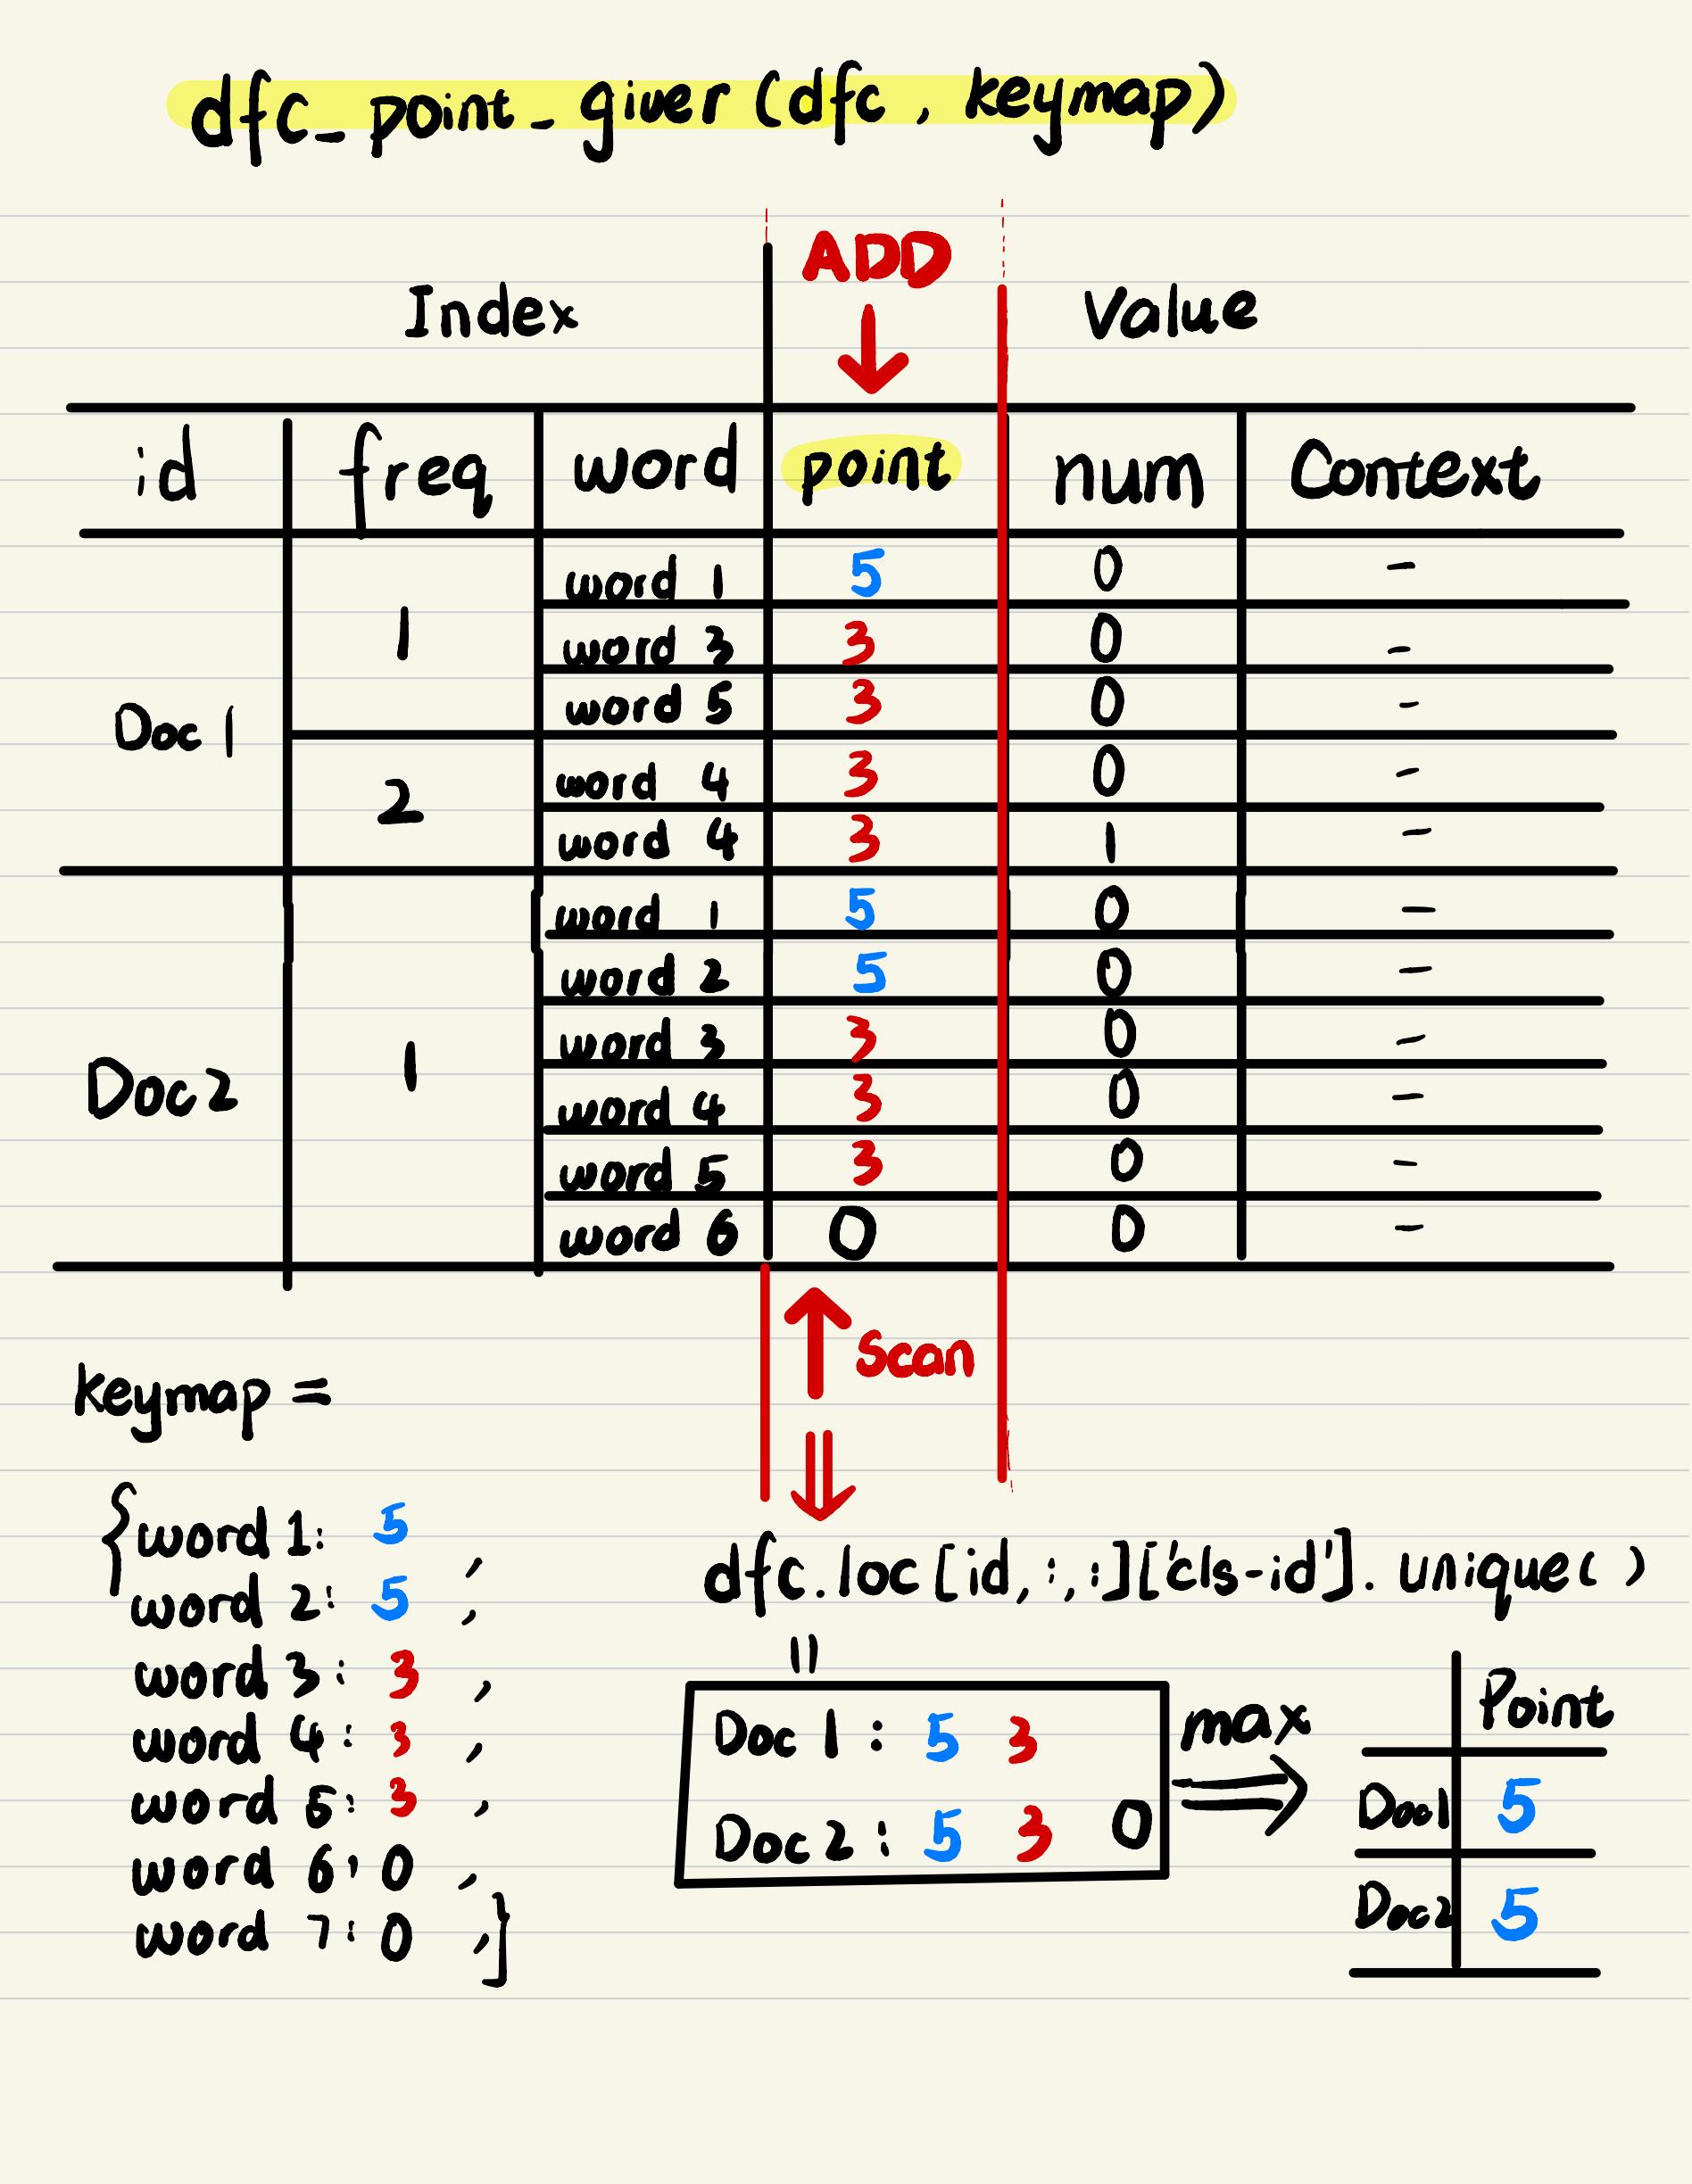 dfc_point_giver (dfc, keymap)
ADD
Index Value
id freq word point num Context
word 1 5 0 -
1 word 3 3 0 -
word 5 3 0 -
Doc 1
2 word 4 3 0 -
word 4 3 1 -
word 1 5 0 -
word 2 5 0 -
word 3 3 0 -
Doc 2 1 word 4 3 0 -
word 5 3 0 -
word 6 0 0 -
Scan
keymap =
{word 1: 5 ,
word 2: 5 ,
word 3: 3 ,
word 4: 3 ,
word 5: 3 ,
word 6: 0 ,
word 7: 0 ,}
dfc.loc[id,:,:]['cls-id'].unique()
=
Doc 1 : 5 3
Doc 2 : 5 3 0
max
Point
Doc1 5
Doc2 5